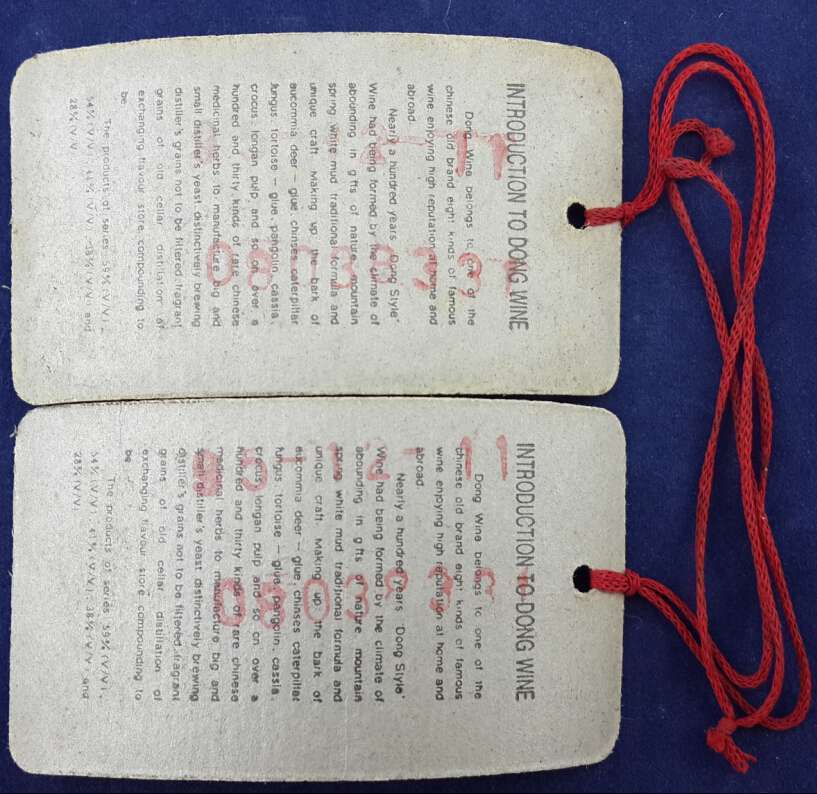 INTRODUCTION TO DONG WINE
Dong Wine belongs to one of the
chinese old brand eight kinds of famous
wine enjoying high reputation at home and
abroad.
Nearly a hundred years "Dong Style"
Wine had being formed by the climate of
abounding in gifts of nature mountain
spring white mud traditional formula and
unique craft. Making up the bark of
eucommia deer - glue chinses caterpillar
fungus tortoise - glue, pangolin, cassia,
crocus longan pulp and so on over a
hundred and thirty kinds of rare chinese
medicinal herbs to manufacture big and
small distiller's yeast distinctively brewing
distiller's grains not to be filtered fragrant
grains of old cellar distillation of
exchanging flavour store, compounding to
be.
The products of series 59% (V/V),
54% (V/V), (V/V), 38% (V/V) and
28% (V/V)
INTRODUCTION TO DONG WINE
Dong Wine belongs to one of the
chinese old brand eight kinds of famous
wine enjoying high reputation at home and
abroad.
Nearly a hundred years "Dong Style"
Wine had being formed by the climate of
abounding in gifts of nature mountain
spring white mud traditional formula and
unique craft. Making up the bark of
eucommia deer - glue, chinses caterpillar
fungus tortoise - glue pangolin, cassia,
crocus longan pulp and so on over a
hundred and thirty kinds of rare chinese
medicinal herbs to manufacture big and
small distiller's yeast distinctively brewing
distiller's grains not to be filtered fragrant
grains of old cellar distillation of
exchanging flavour store, compounding to
be.
The products of series 59% (V/V),
54% (V/V), (V/V), 38% (V/V) and
28% (V/V)